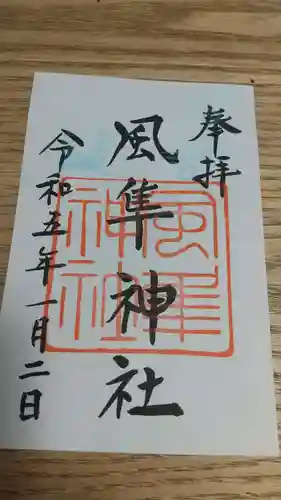 奉拝
風隼神社
令和五年一月二日
風隼
神社